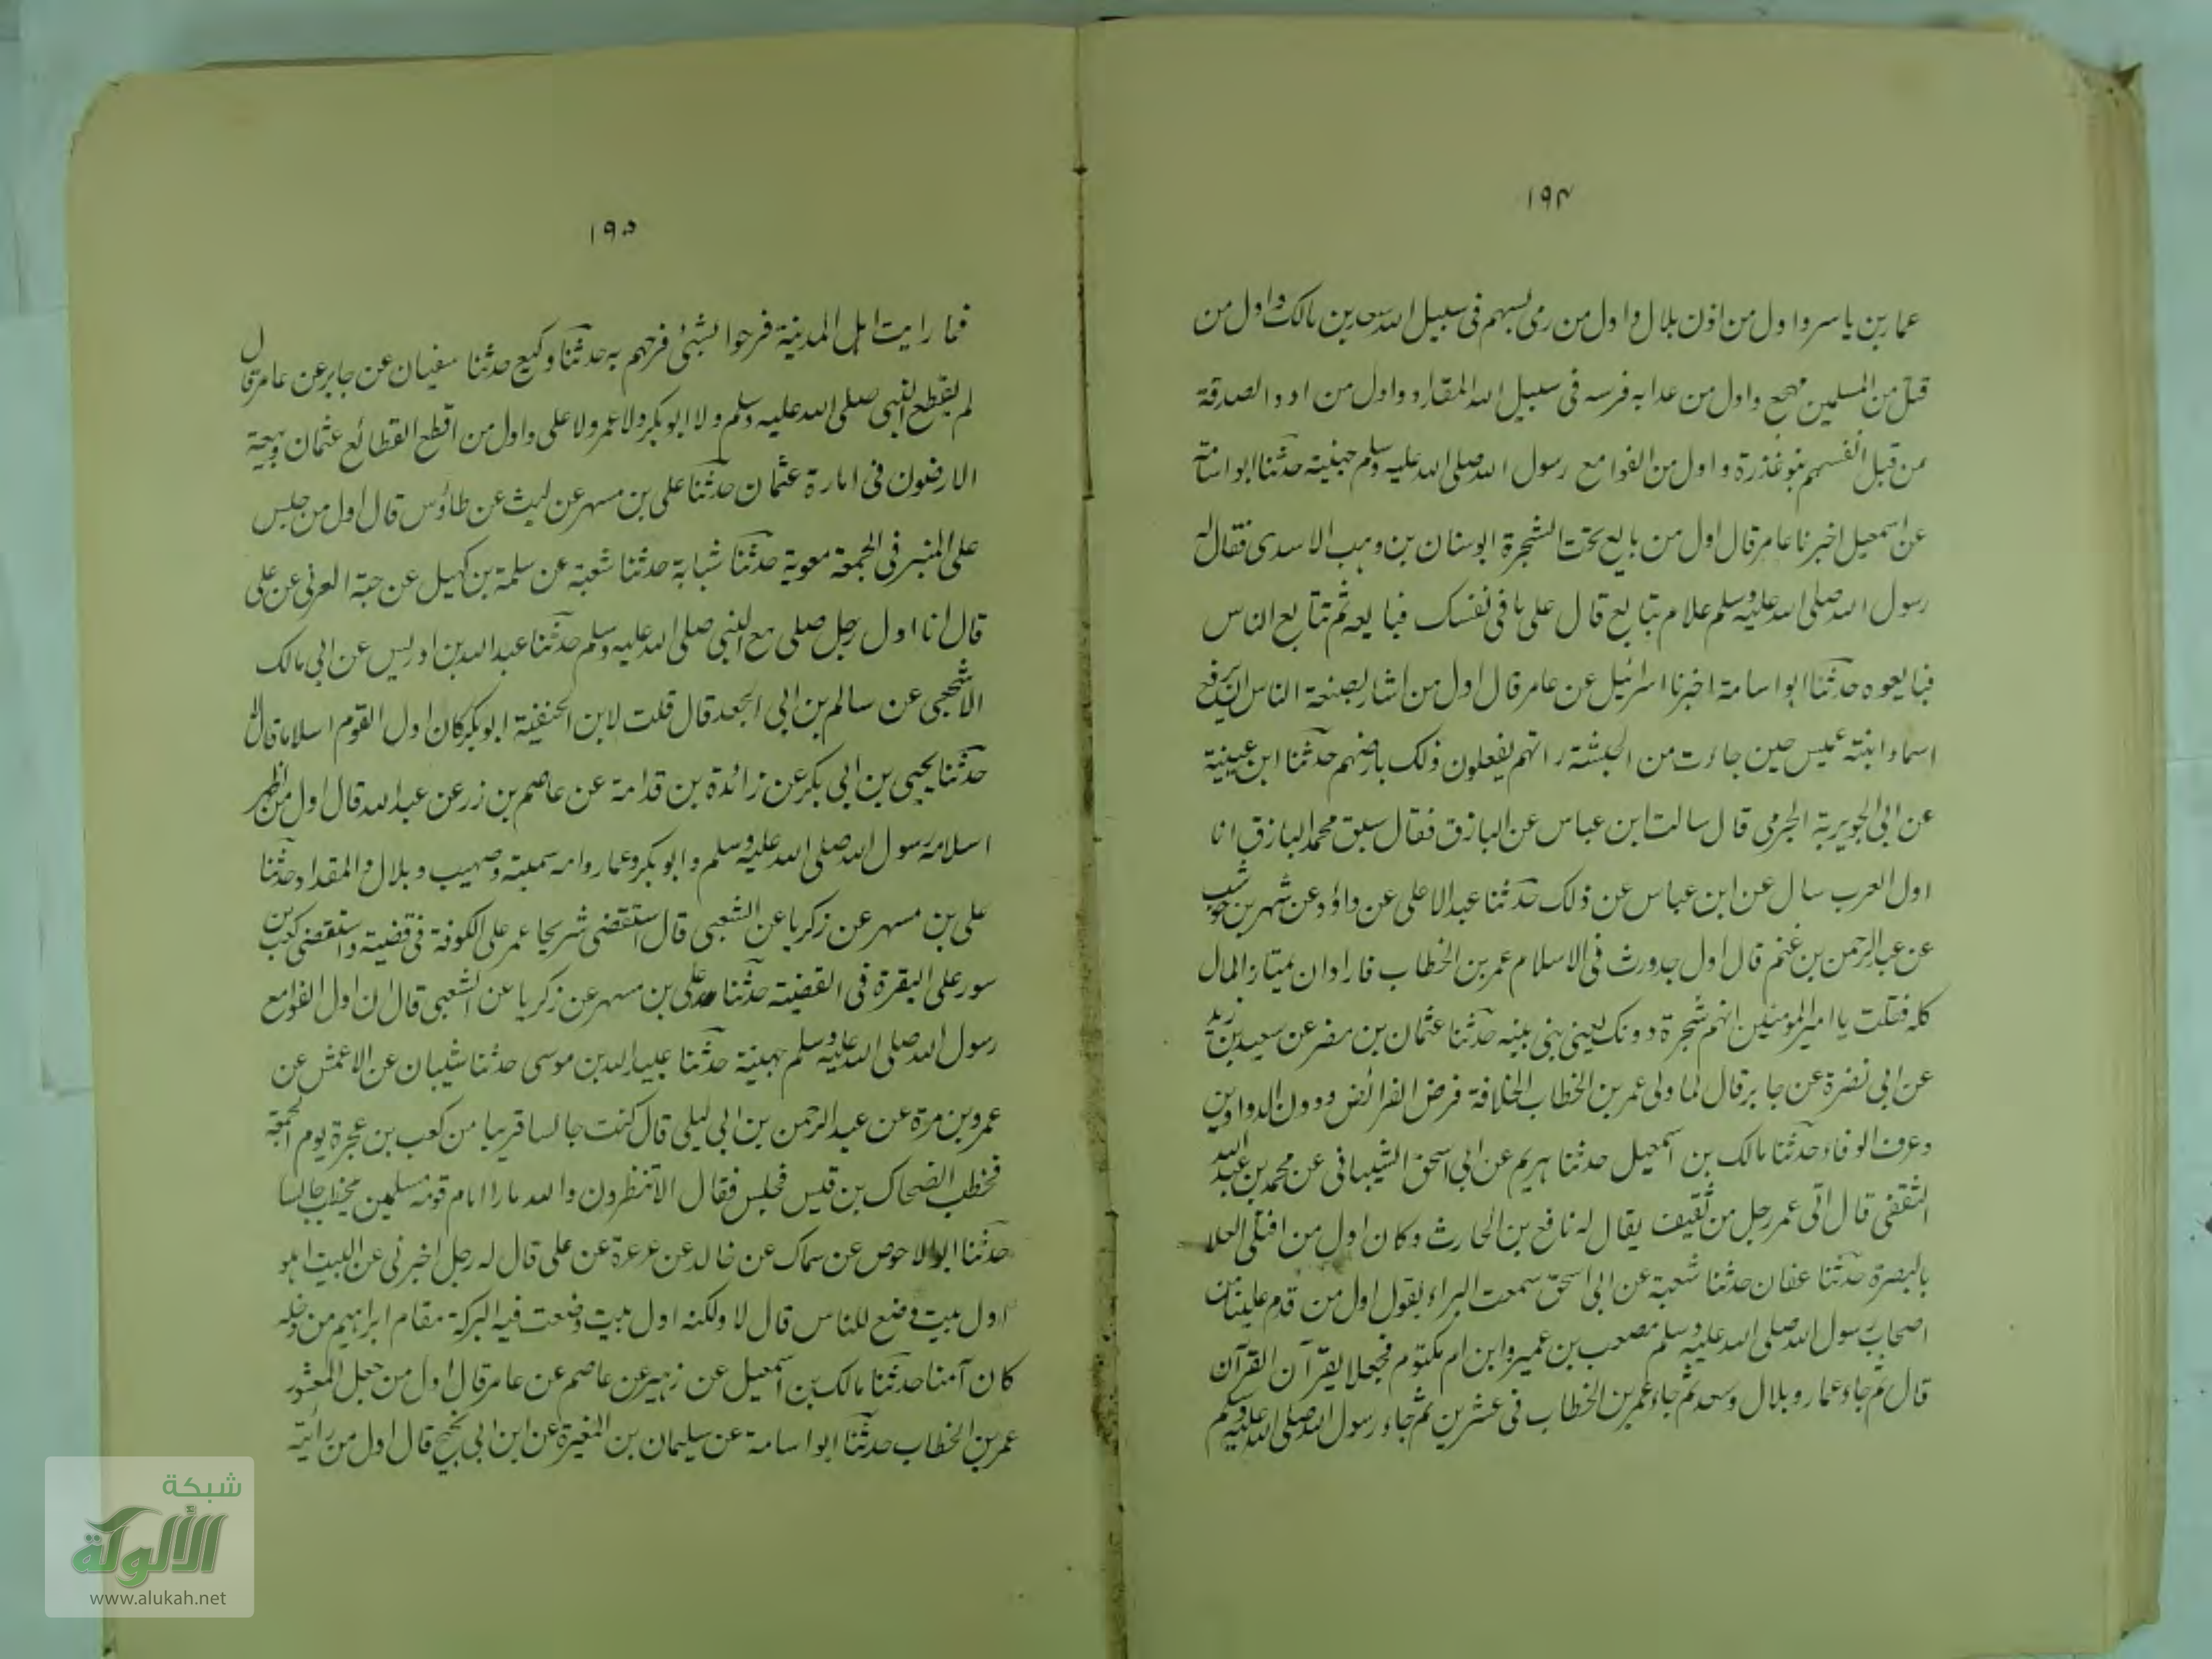 ١٩٤
عمار بن ياسر واول من اذن بلال واول من رمى بسهم فى سبيل الله سعد بن مالك واول من
قتل من المسلمين مهجع واول من عدا به فرسه فى سبيل الله المقداد واول من ادى الصدقة
من قبل انفسهم بنو عذرة واول من الفوا مع رسول الله صلى الله عليه وسلم جهينة حدثنا ابو اسامة
عن اسمعيل اخبرنا عامر قال اول من بايع تحت الشجرة ابو سنان بن وهب الاسدى فقال له
رسول الله صلى الله عليه وسلم علام تبايع قال على ما فى نفسك فبايعه ثم تتابع الناس
فبايعوه حدثنا ابو اسامة اخبرنا اسرائيل عن عامر قال اول من اشار بصنعة الناس ان يرفع
اسماء ابنة عميس حين جاءت من الحبشة راتهم يفعلون ذلك بارضهم حدثنا ابن عيينة
عن ابى الجويرية الجرمى قال سالت ابن عباس عن الباذق فقال سبق محمد الباذق انا
اول العرب سال عن ابن عباس عن ذلك حدثنا عبد الاعلى عن داؤد عن شهر بن حوشب
عن عبد الرحمن بن غنم قال اول جد ورث فى الاسلام عمر بن الخطاب فاراد ان يحتاز المال
كله فقلت يا امير المومنين انهم شجرة دونك يعنى بنى بنيه حدثنا عثمان بن مضر عن سعيد بن زيد
عن ابى نضرة عن جابر قال لما ولى عمر بن الخطاب الخلافة فرض الفرائض ودون الدواوين
وعرف العرفاء حدثنا مالك بن اسمعيل حدثنا هريم عن ابى اسحق الشيبانى عن محمد بن عبيد الله
الثقفى قال اتى عمر رجل من ثقيف يقال له نافع بن الحارث وكان اول من افتلى الفلا
بالبصرة حدثنا عفان حدثنا شعبة عن ابى اسحق سمعت البراء يقول اول من قدم علينا من
اصحاب رسول الله صلى الله عليه وسلم مصعب بن عمير وابن ام مكتوم فجعلا يقرآن القرآن
قال ثم جاء عمار وبلال وسعد ثم جاء عمر بن الخطاب فى عشرين ثم جاء رسول الله صلى الله عليه وسلم
١٩٥
فما رايت اهل المدينة فرحوا بشئ فرحهم به حدثنا وكيع حدثنا سفيان عن جابر عن عامر قال
لم يقطع النبى صلى الله عليه وسلم ولا ابو بكر ولا عمر ولا على واول من اقطع القطائع عثمان وبيعت
الارضون فى امارة عثمان حدثنا على بن مسهر عن ليث عن طاؤس قال اول من جلس
على المنبر فى الجمعة معوية حدثنا شبابة حدثنا شعبة عن سلمة بن كهيل عن حبة العرنى عن على
قال انا اول رجل صلى مع النبى صلى الله عليه وسلم حدثنا عبد الله بن ادريس عن ابى مالك
الاشجعى عن سالم بن ابى الجعد قال قلت لابن الحنفية ابو بكر كان اول القوم اسلاما قال لا
حدثنا يحيى بن ابى بكر عن زائدة بن قدامة عن عاصم بن زر عن عبد الله قال اول من اظهر
اسلامه رسول الله صلى الله عليه وسلم وابو بكر وعمار وامه سمية وصهيب وبلال والمقداد حدثنا
على بن مسهر عن زكريا عن الشعبى قال استقضى شريحا عمر على الكوفة فى قضية واستقضى كعب بن
سور على البقرة فى القضية حدثنا على بن مسهر عن زكريا عن الشعبى قال ان اول الفوا مع
رسول الله صلى الله عليه وسلم جهينة حدثنا عبيد الله بن موسى حدثنا شيبان عن الاعمش عن
عمرو بن مرة عن عبد الرحمن بن ابى ليلى قال كنت جالسا قريبا من كعب بن عجرة يوم الجمعة
فخطب الضحاك بن قيس فجلس فقال الا تنظرون والله ما را امام قوم مسلمين يخطب جالسا
حدثنا ابو الاحوص عن سماك عن خالد عن عرعرة عن على قال له رجل اخبرنى عن البيت اهو
اول بيت وضع للناس قال لا ولكنه اول بيت وضعت فيه البركة مقام ابراهيم من دخله
كان آمنا حدثنا مالك بن اسمعيل عن زهير عن عاصم عن عامر قال اول من جعل العشور
عمر بن الخطاب حدثنا ابو اسامة عن سليمان بن المغيرة عن ابن ابى نجيح قال اول من رأيته
شبكة
الألوكة
www.alukah.net